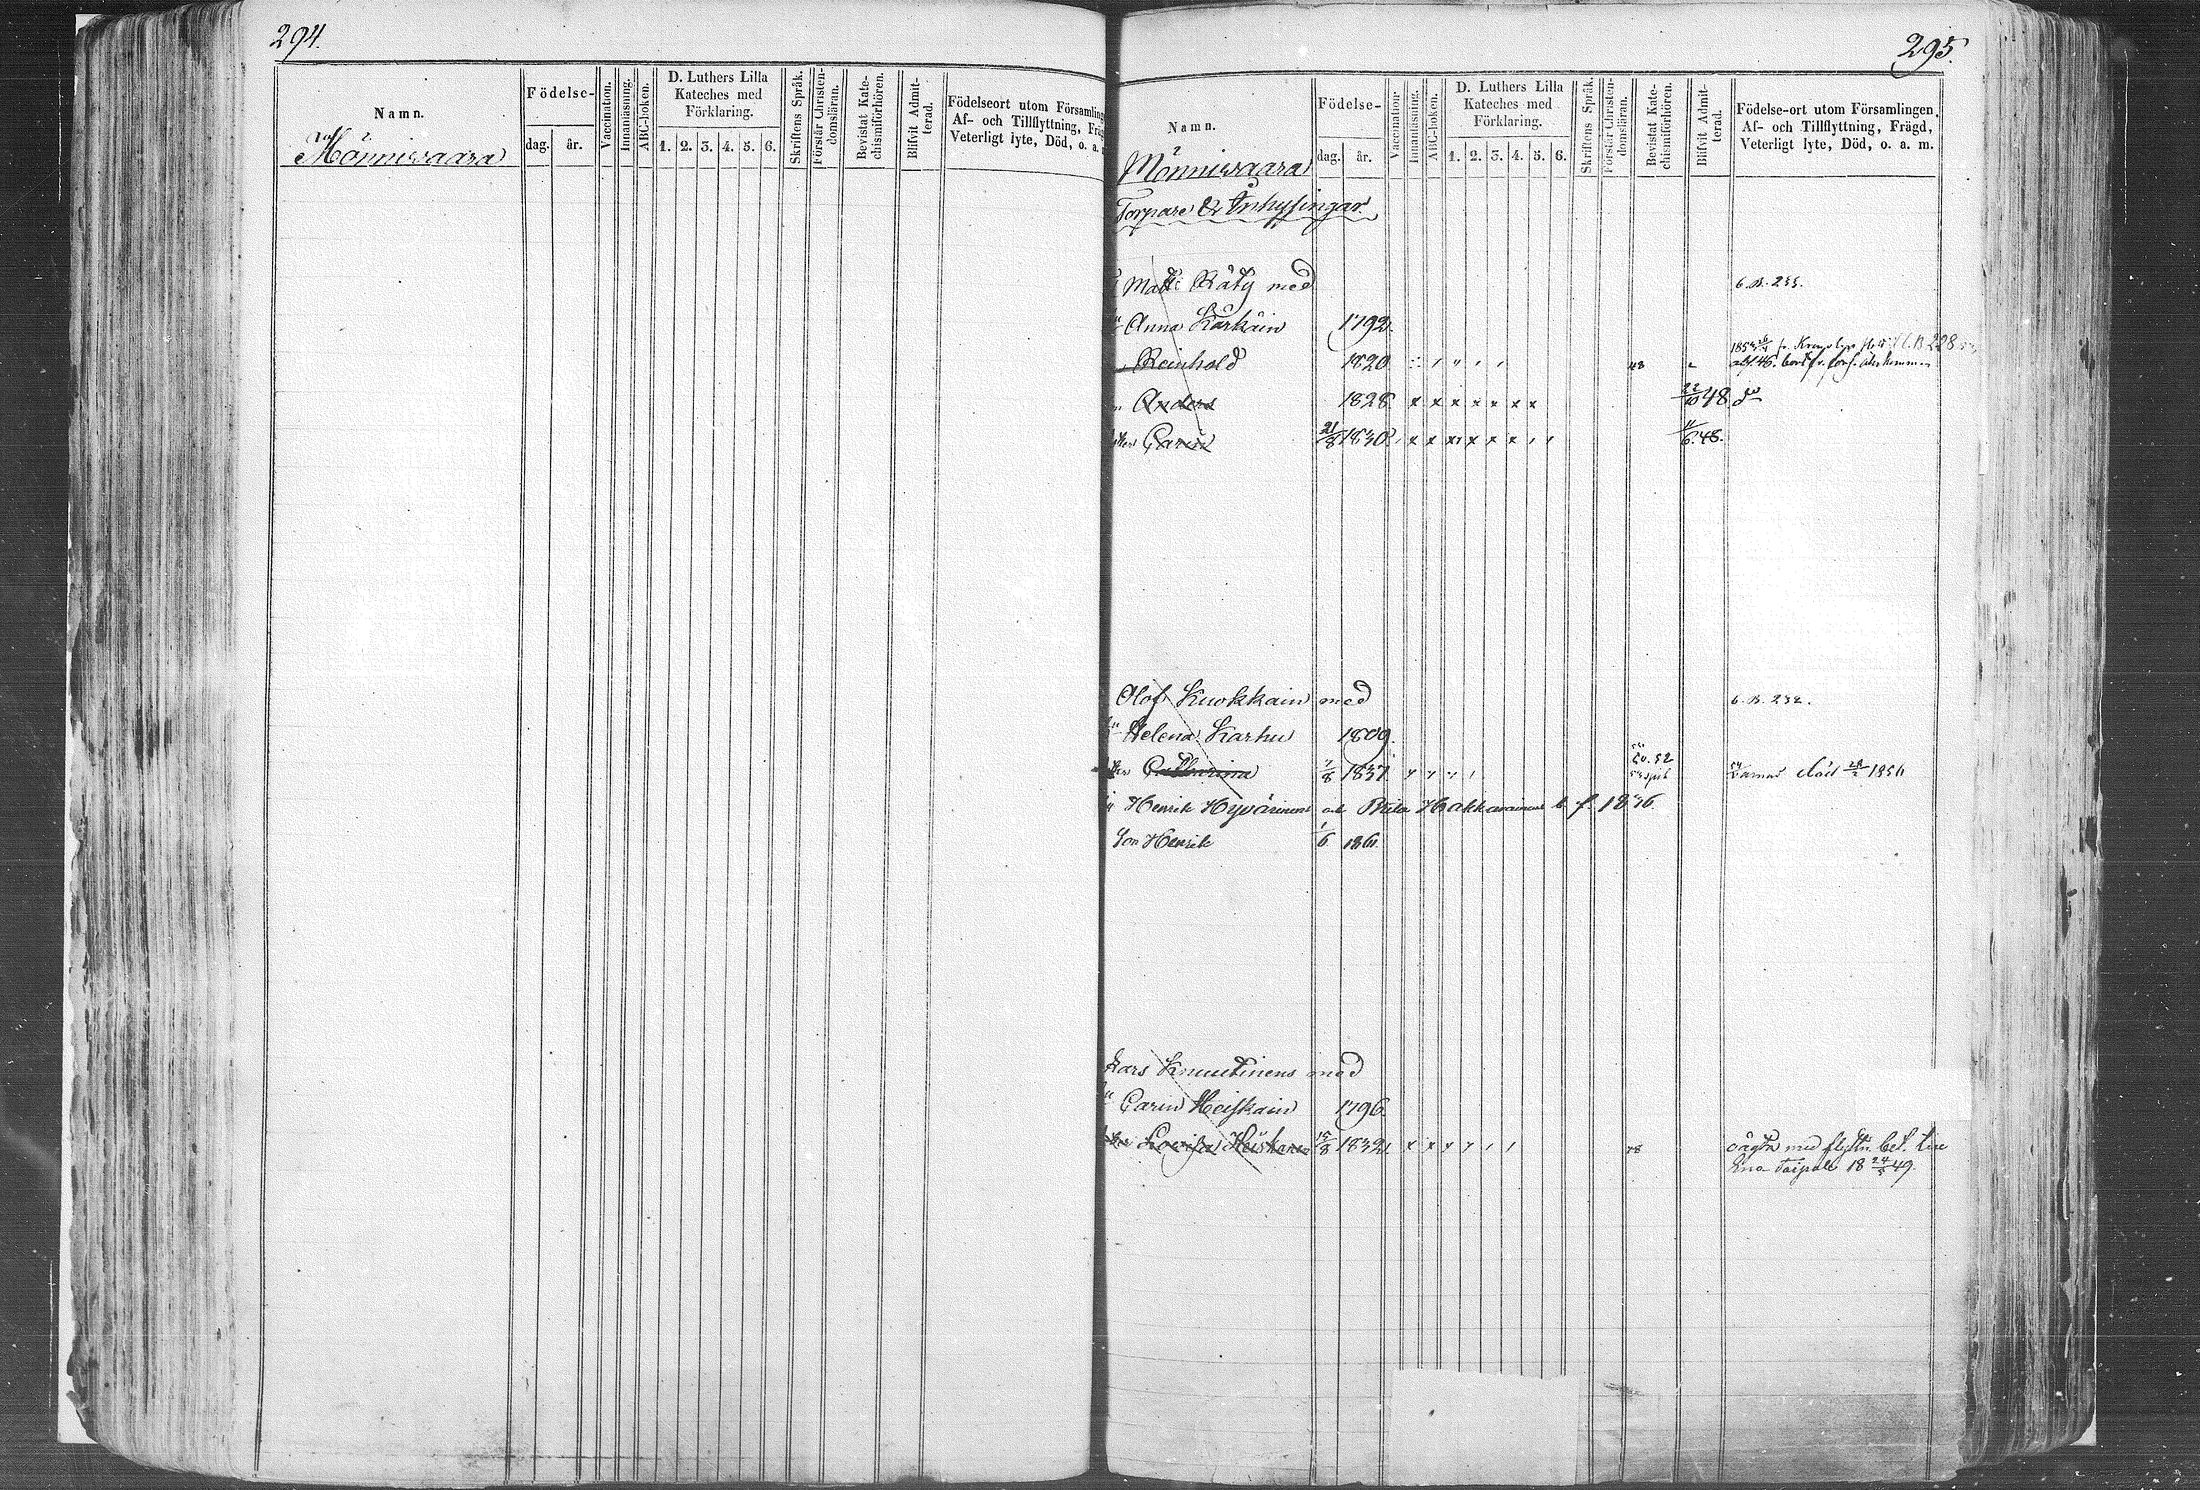 294.
Namn.
Födelse-
dag. år.
Vaccination.
Innanläsning.
ABC-boken.
D. Luthers Lilla
Kateches med
Förklaring.
1. 2. 3. 4. 5. 6.
Skriftens Språk.
Förstår Christen-
domsläran.
Bevistat Kate-
chismiförhören.
Blifvit Admit-
terad.
Födelseort utom Församling
Af- och Tillflyttning, Fräg
Veterligt lyte, Död, o. a. m
Mönniwaara
295.
Namn.
Födelse-
dag. år.
Vaccination
Innanläsning.
ABC-boken.
D. Luthers Lilla
Kateches med
Förklaring.
1. 2. 3. 4. 5. 6.
Skriftens Språk.
Förstår Christen-
domsläran.
Bevistat Kate-
chismiförhören.
Blifvit Admit-
terad.
Födelse-ort utom Församlingen,
Af- och Tillflyttning, Frägd,
Veterligt lyte, Död, o. a. m.
Mönniwaara
Torpare & Inhysingar.
Matti Räty med
Anna Kärkäin 1792.
Reinhold 1820 48
Anders 1828 x x x x x x x 22/10 48 do
Carin 21/8 1830 x x x x x x 11/6 48.
Olof Kuokkain med
Helena Karhu 1809.
Catharina 7/8 1837. 50. 52 död 28/2 1856
Henrik Hyvärinens och Brita Hakkarainens b. f. 1836
Son Henrik 1/6 1861
Lars Knuutinens med
Carin Heiskain 1796.
Lovisa Heiskanen 15/8 1832 x x 48 med flyttn. bet. till
Eno Taipale 18 24/5 49.